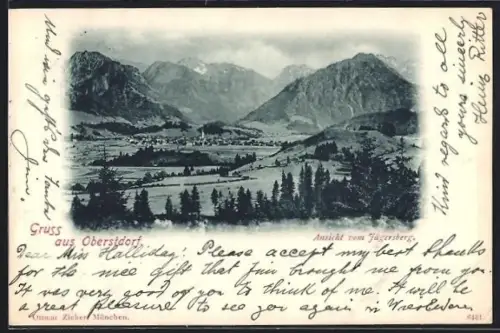 Gruss
aus Oberstdorf,
Ansicht vom Jägersberg.
Dear Miss Halliday! Please accept my best thanks
for the nice gift that Jim brought me from you.
It was very good of you to think of me. It will be
a great pleasure to see you again in Wiesbaden.
Ottmar Zieher, München.
Kind regards to all
yours sincerly
Heinz Ritter
Jim.